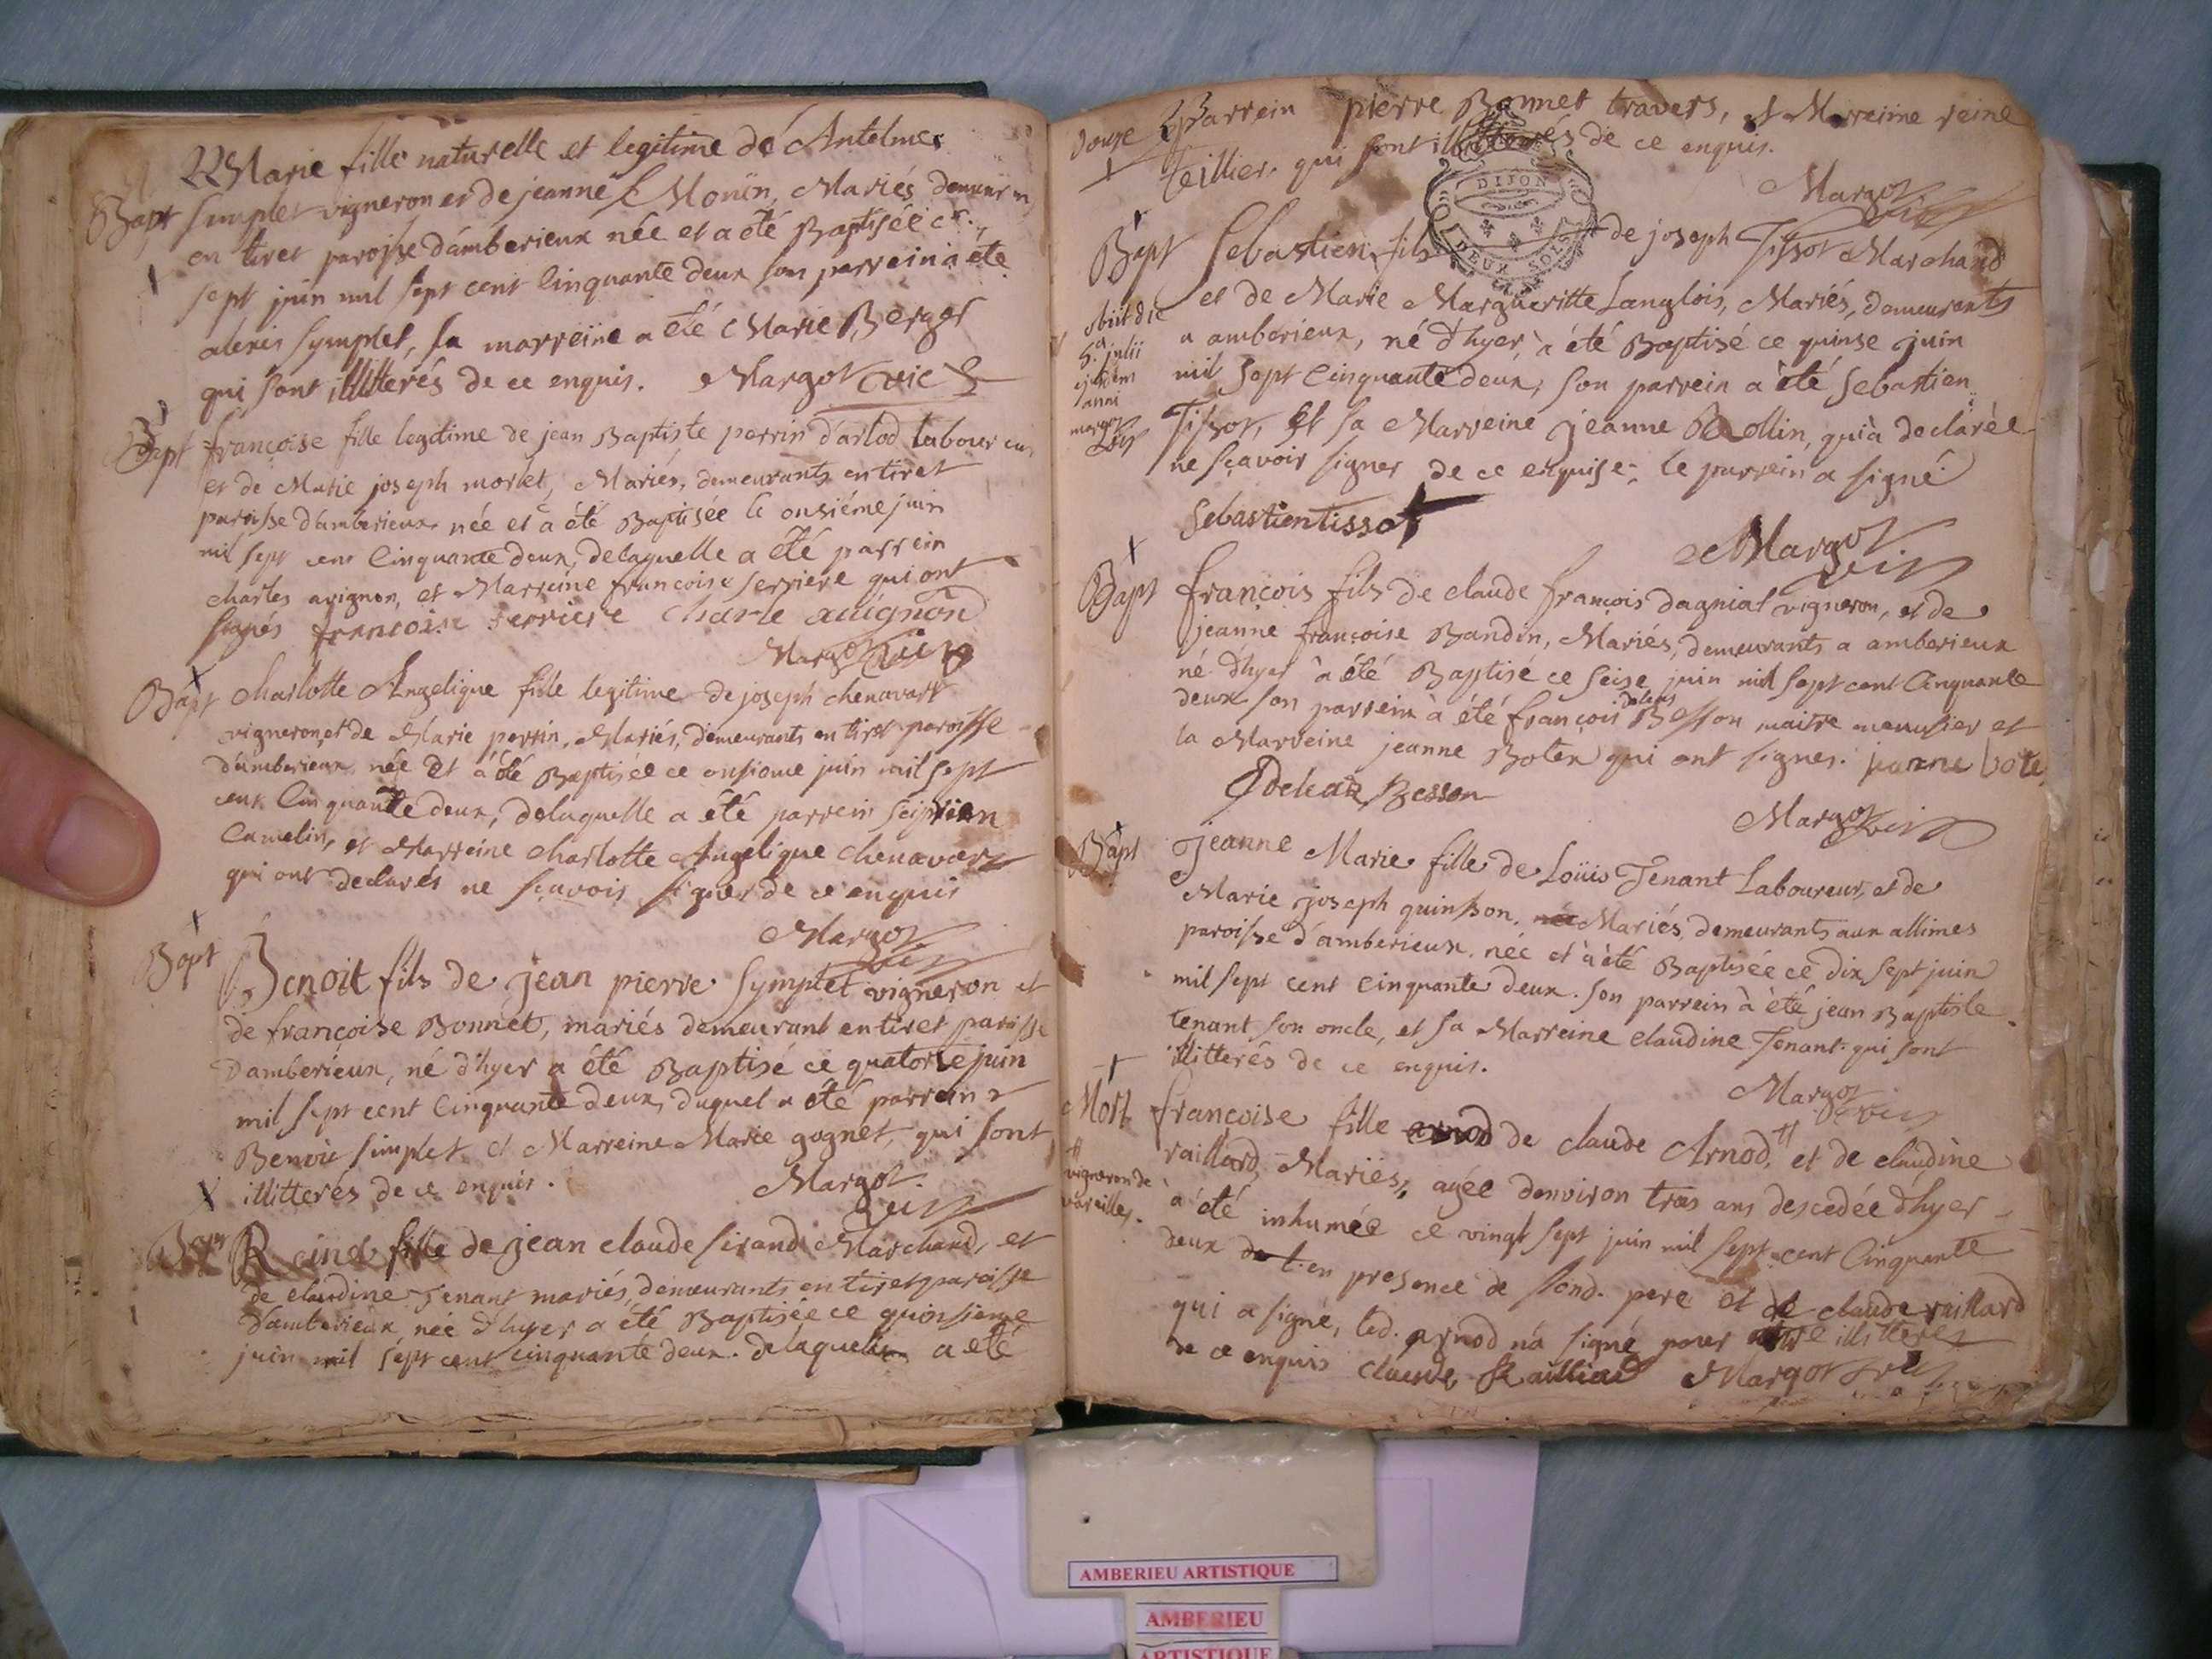 Marie fille naturelle et legitime de Antelme
Bapt Simplet vigneron et de jeanne Moüin, Mariés demeur
en tiret paroisse d'amberieux née et a été Baptisée ce
sept juin mil sept cent Cinquante deux son parrein a été
alexis Symplet, sa marreine a été Marie Berger
qui sont illitterés de ce enquis. Margot vic
Bapt françoise fille legitime de jean Baptiste perrin d'arlod laboureur
et de Marie joseph morlet, Mariés, demeurants en tiret
paroisse d'amberieux née et a été Baptisée le onsiéme juin
mil sept cent Cinquante deux, de laquelle a été parrein
charles avignon, et Marreine francoise serriere qui ont
signés francoise serriere Charle auignon
Margot vic
Bapt Charlotte Angelique fille legitime de joseph chenavart
vigneron, et de Marie perrin, Mariés, demeurants en tiret paroisse
d'amberieux née et a été Baptisée ce onsiome juin mil sept
cent Cinquante deux, de laquelle a été parrein
Camelin, et Marreine charlotte Angelique chenavart
qui ont declarés ne sçavoir signer de ce enquis
Margot
vic
Bapt Benoit fils de jean pierre Symplet vigneron et
de françoise Bonnet, mariés demeurant en tiret paroisse
D'amberieux, né d'hyer a été Baptisé ce quatorze juin
mil sept cent Cinquante deux, duquel a été parrein
Benoit simplet et Marreine Marie gognet, qui sont
illitterés de ce enquis.
Margot
vic
Bapt Reine fille de jean claude sirand Marchand, et
de claudine Tenant mariés, demeurants en tiret paroisse
d'amberieux née d'hyer a été Baptisée ce quinsieme
juin mil sept cent cinquante deux. de laquelle a été
Douse Parrein pierre Bonnet travers, et Marreine reine
teillier qui sont illitterés de ce enquis.
Margot
vic
DIJON
DEUX SOLS
Bapt Sebastien, fils de joseph Tissot Marchand
et de Marie Margueritte Langlois, Mariés, demeurants
obiit die
a amberieux, né d'hyer, a été Baptisé ce quinse juin
5.a julii
ejusdem
mil sept Cinquante deux, son parrein a été Sebastien
anni
Tissot, et sa Marreine jeanne Rollin, qui a declarée
margot
vic
ne sçavoir signer de ce enquise, le parrein a signé
Sebastien tissot
Margot
vic
Bapt françois fils de claude françois dagniat vigneron, et de
jeanne françoise Bandin, Mariés, demeurants a amberieux
né d'hyer a été Baptisé ce seise juin mil sept cent Cinquante
deux son parrein a été françois Besson maitre menusier et
la Marreine jeanne Botex qui ont signes. jeanne bote
Besson
Margot vic
Bapt Jeanne Marie fille de Loüis Tenant Laboureur, et de
Marie joseph quinson, née Mariés, demeurants aux allimes
paroisse d'amberieux, née et a été Baptisée ce dix sept juin
mil sept cent cinquante deux. son parrein à été jean Baptiste
tenant son oncle, et sa Marreine claudine Tenant qui sont
illitterés de ce enquis.
Margot
vic
Mort françoise fille arnod de claude Arnod, # et de claudine
# vigneron de
vareilles.
raillard, Mariés, agée d'environ trois ans descedée d'hyer
à été inhumée ce vingt sept juin mil sept cent Cinquante
deux en presence de sond. pere et de claude raillard
qui a signé, led. arnod n'a signé pour être illitteré
de ce enquis claude Railliard Margot vic
AMBERIEU ARTISTIQUE
AMBERIEU
ARTISTIQUE